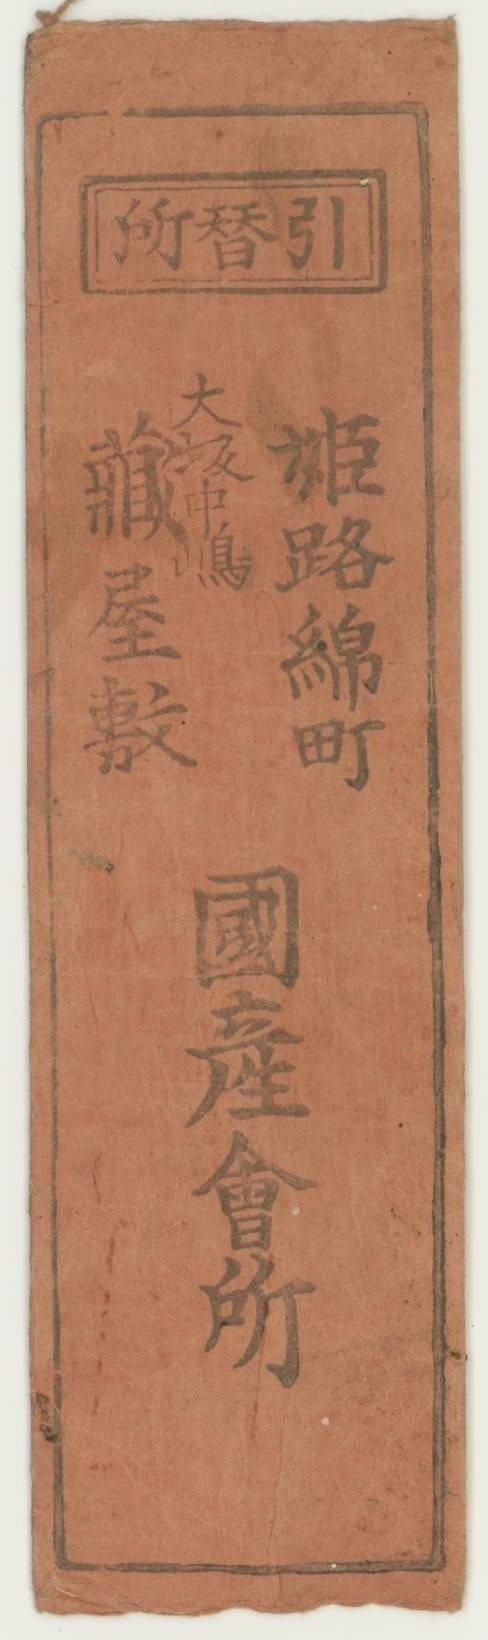 引替所
姫路綿町
大坂中嶋
藏屋敷
國産會所